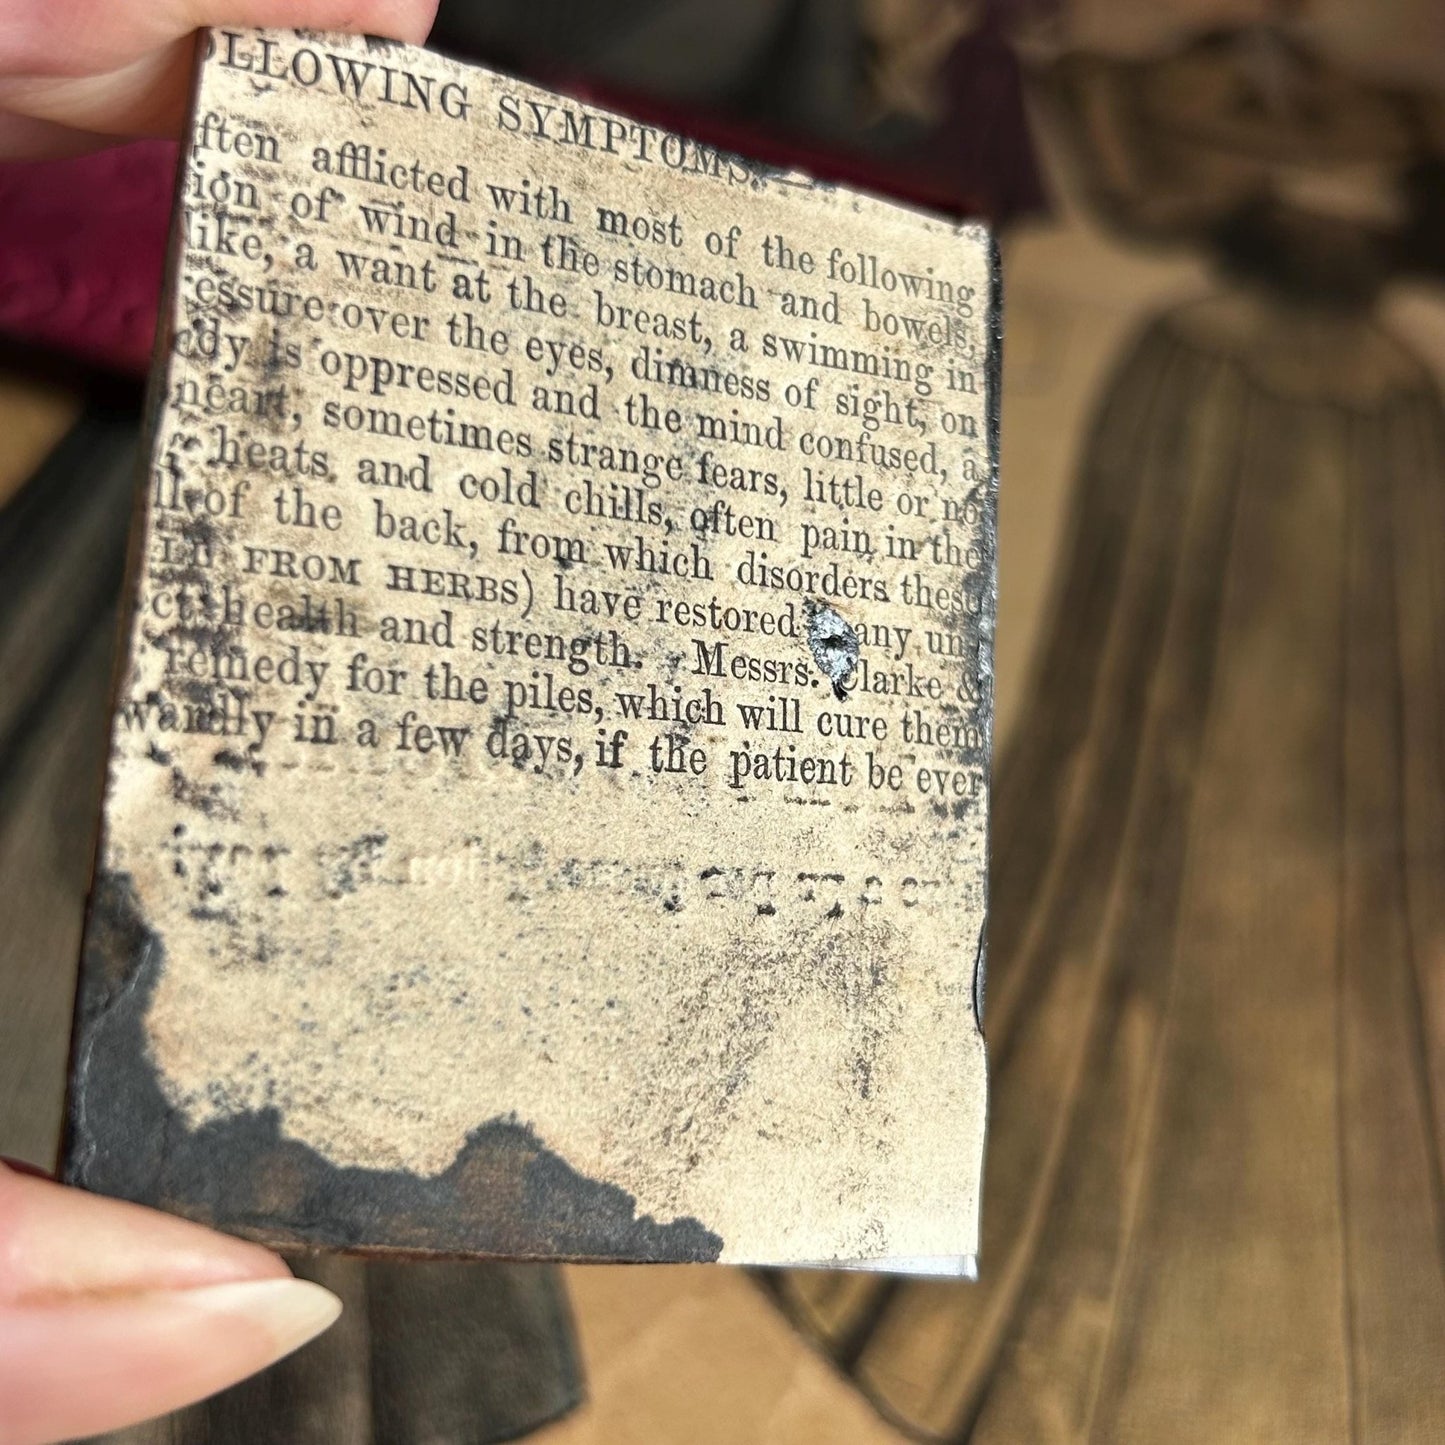 OLLOWING SYMPTOMS.—
ften afflicted with most of the following
ion of wind in the stomach and bowels,
like, a want at the breast, a swimming in
essure over the eyes, dimness of sight, on
edy is oppressed and the mind confused, a
heart, sometimes strange fears, little or no
heats and cold chills, often pain in the
ll of the back, from which disorders these
LD FROM HERBS) have restored any un
ct health and strength. Messrs. Clarke &
remedy for the piles, which will cure them
wardly in a few days, if the patient be ever